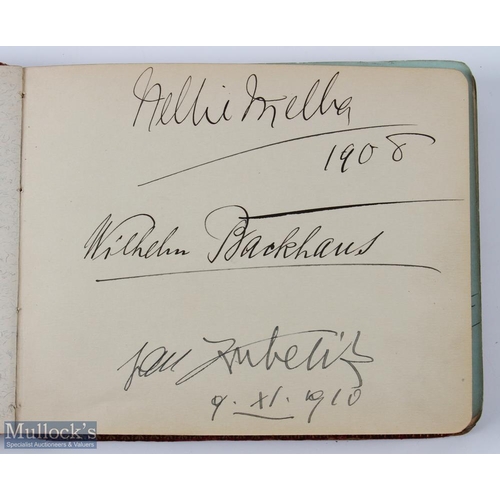 Nellie Melba
1908
Wilhelm Backhaus
Jan Kubelik
9. XI. 1910
Mullock's
Specialist Auctioneers & Valuers